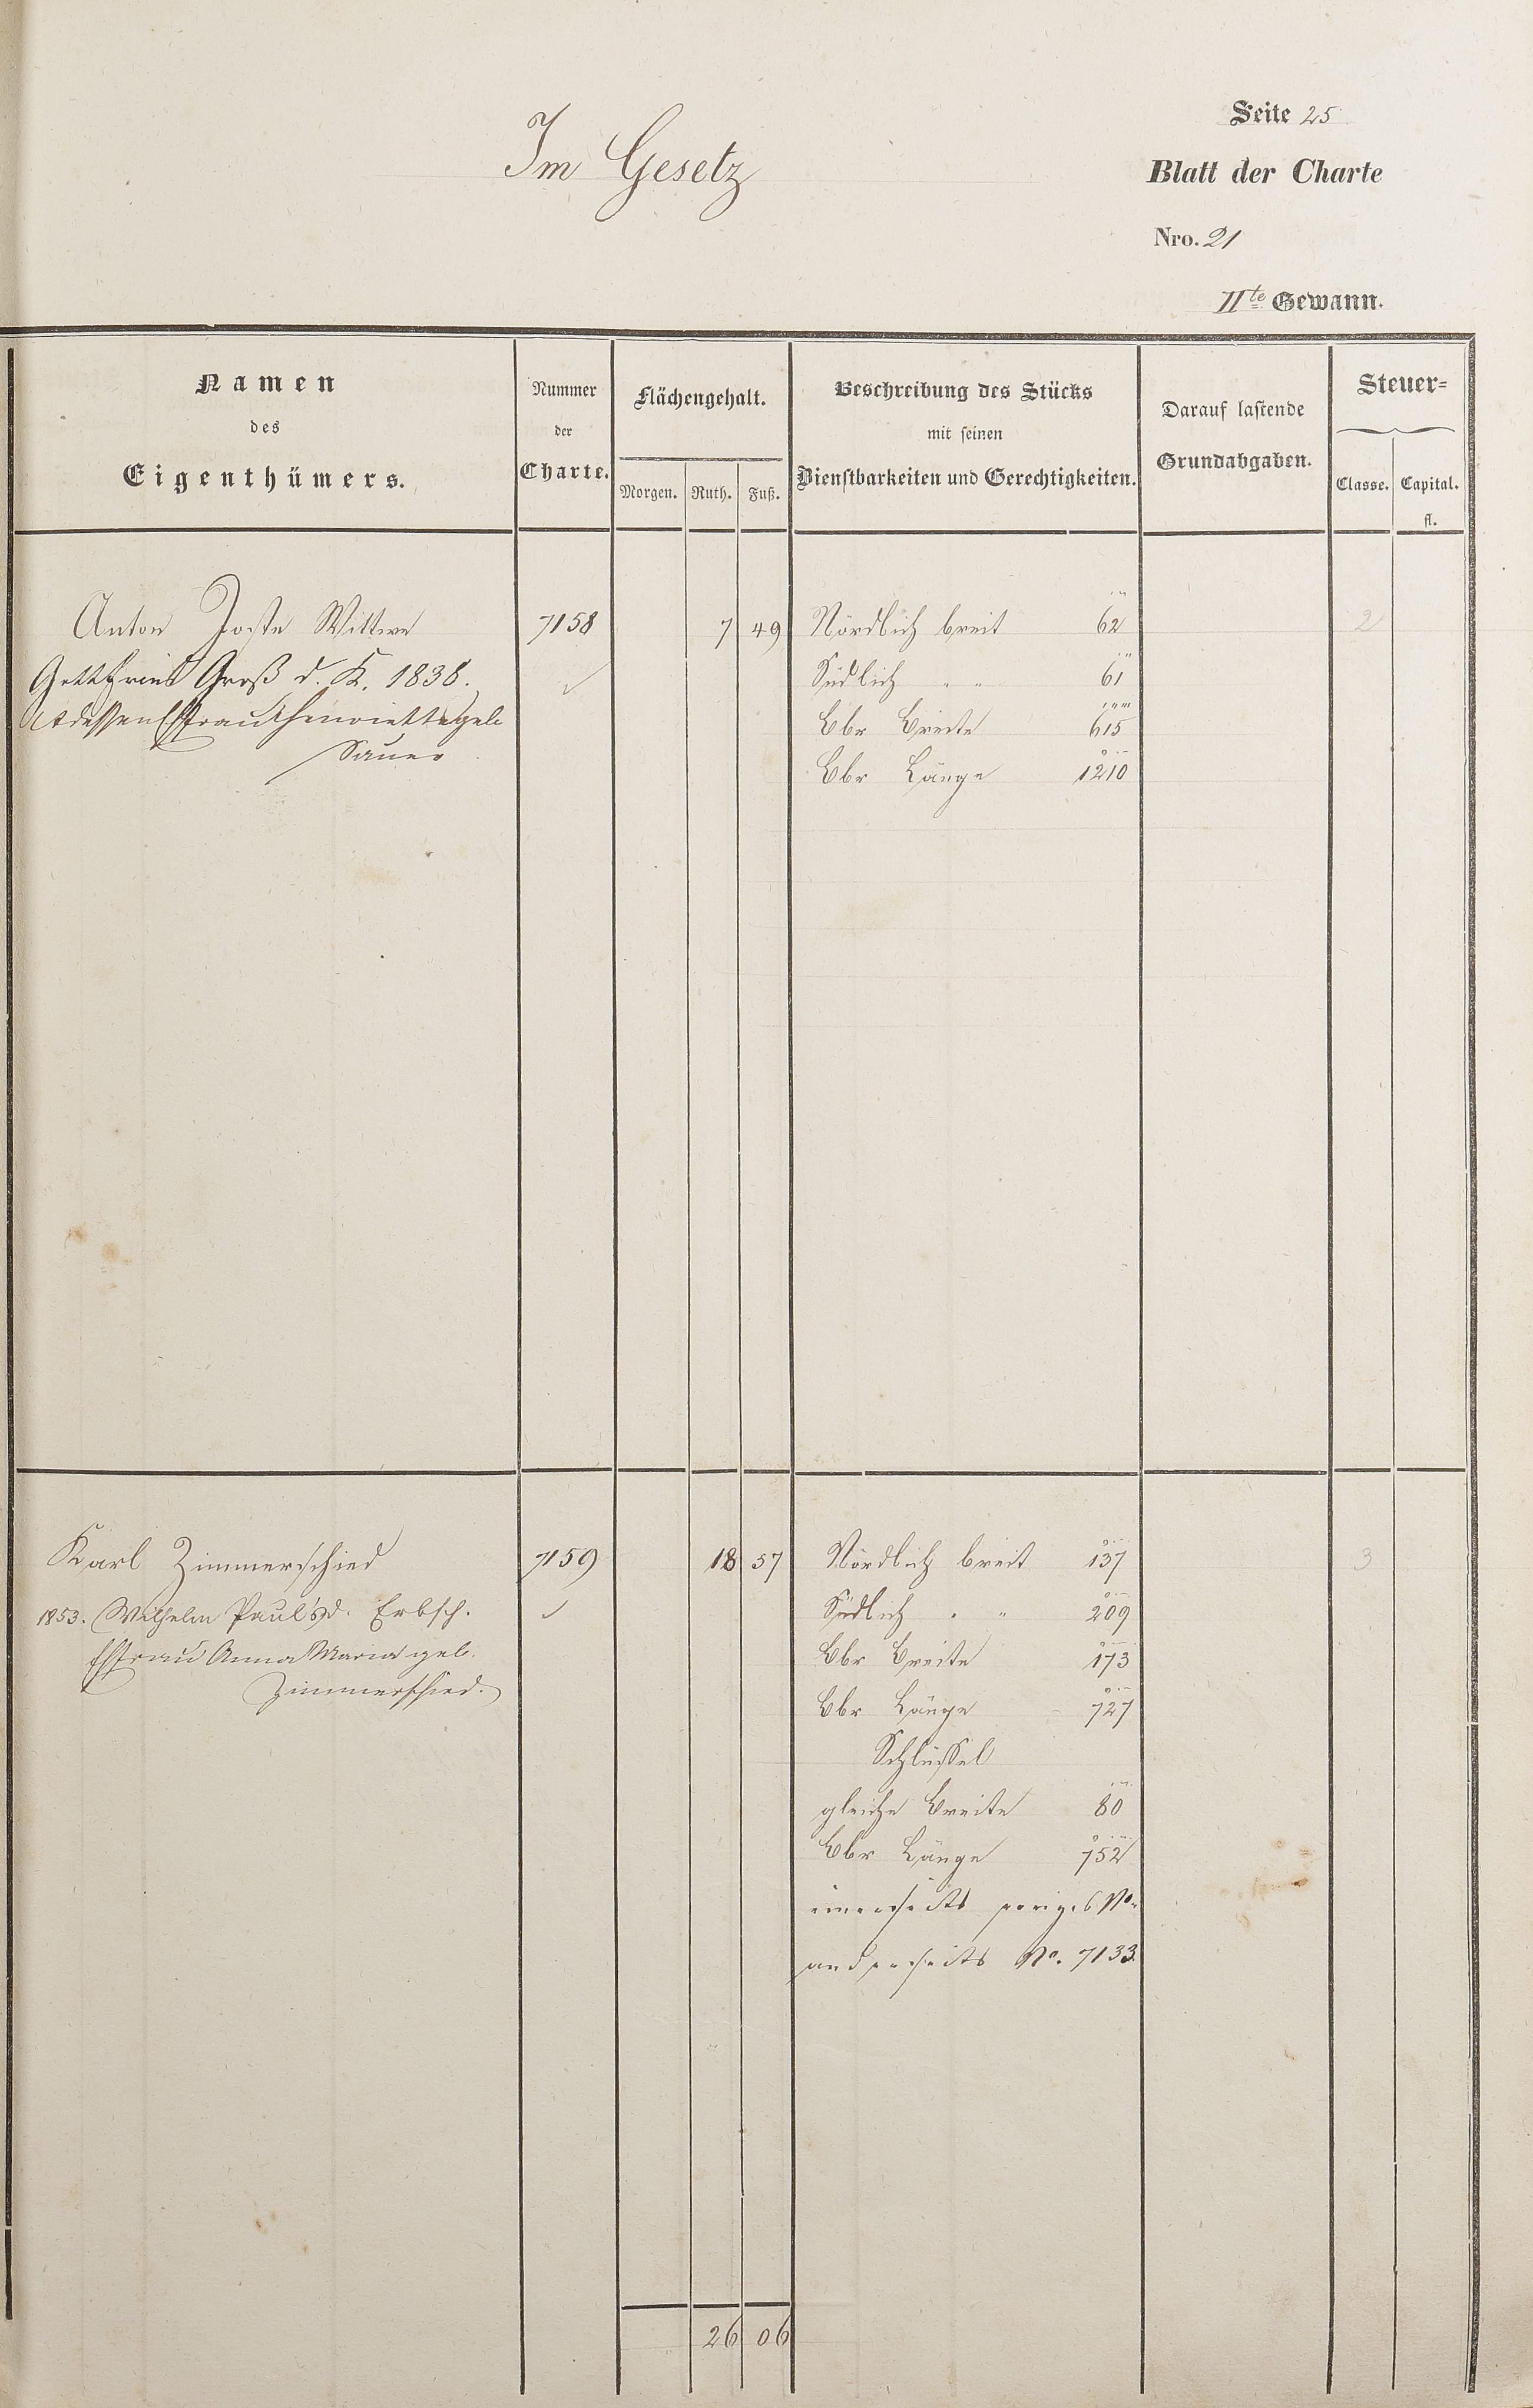 Seite 25
Im Gesetz
Blatt der Charte
Nro. 21
IIte Gewann.
Namen
des
Eigenthümers.
Nummer
der
Charte.
Flächengehalt.
Morgen. Ruth. Fuß.
Beschreibung des Stücks
mit seinen
Dienstbarkeiten und Gerechtigkeiten.
Darauf lastende
Grundabgaben.
Steuer=
Classe. Capital.
fl.
Anton Joste Wittwe 7158 7 49 Nördlich breit 62 2
Gottfried Groß d. K. 1838. Südlich " " 61
dessen Ehfrau Henriette geb. Ebr Breite 615
Sauer Ebr Länge 1210
Karl Zimmerschied 7159 18 57 Nördlich breit 137 3
1853. Wilhelm Paul's d. Erbsch. Südlich " " 209
Ehfrau Anna Maria geb. Ebr Breite 173
Zimmerschied. Ebr Länge 727
Schlüssel
gleiche Breite 80
Ebr Länge 752
einerseits voriges No.
anderseits No. 7133.
26 06